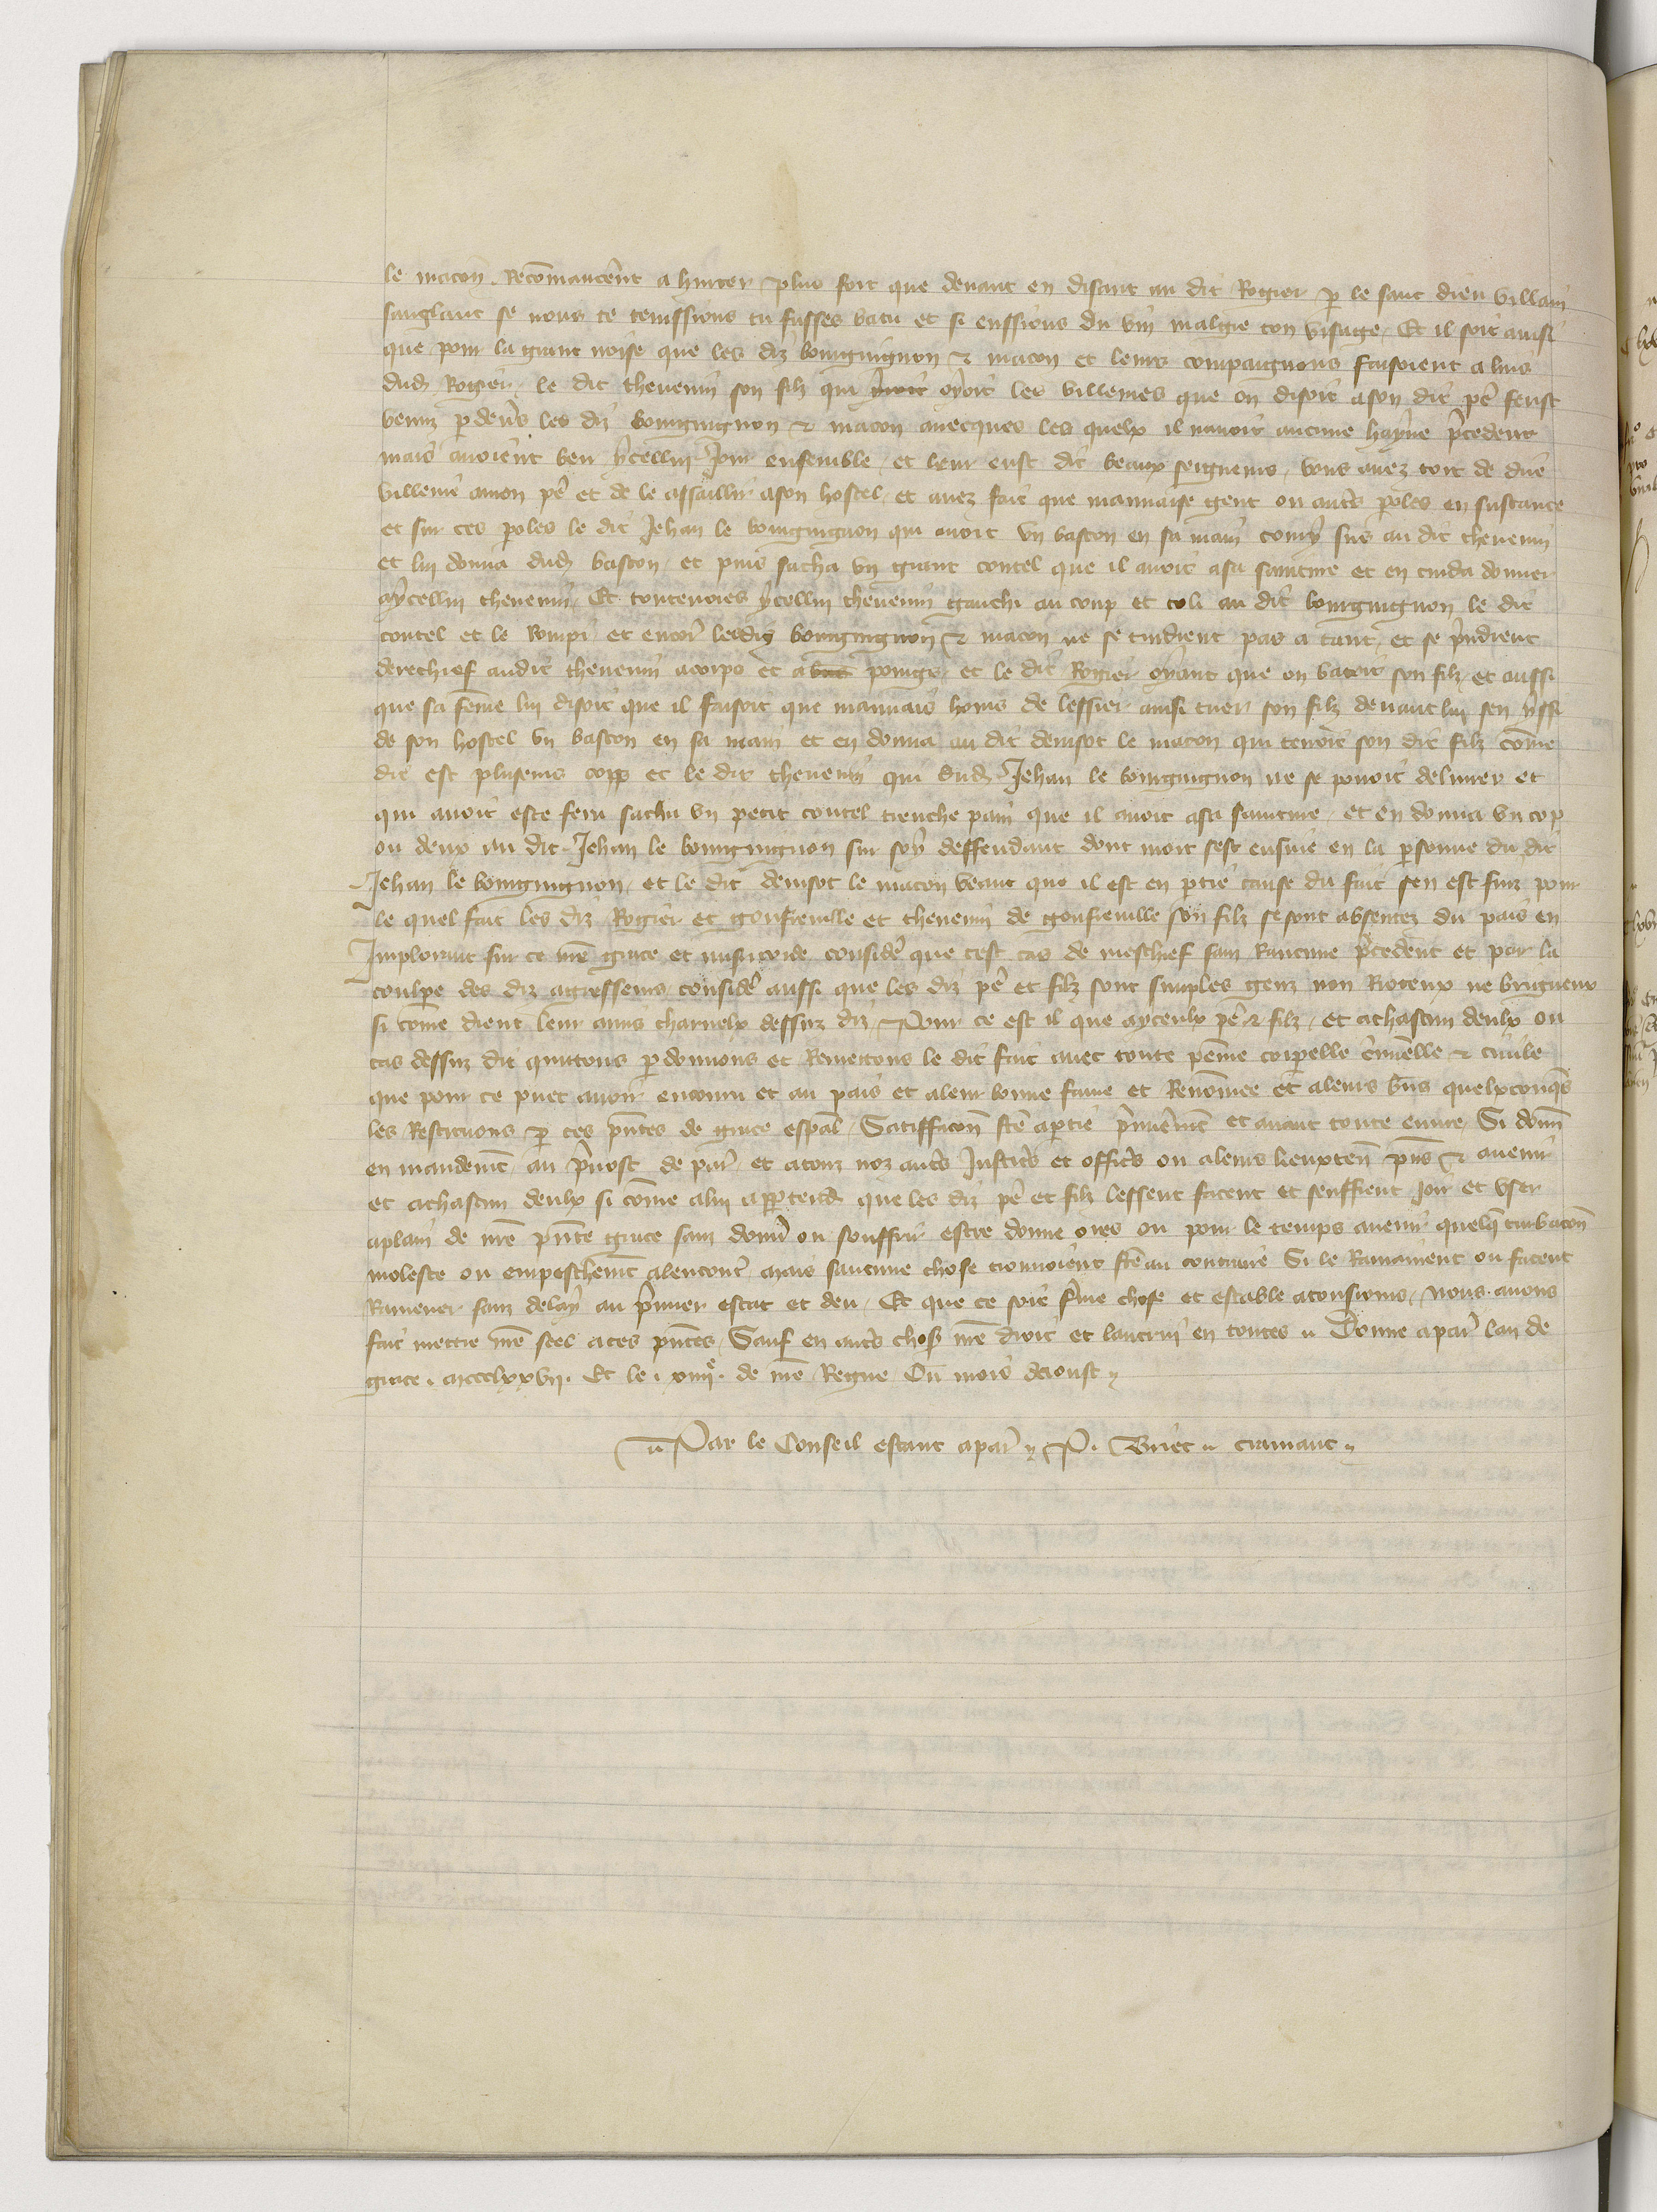 le macon. Recōmancerēt a hurter plus fort que devant en disant au dit Rogier p̄ le sanc dieu villain
sanglant se nous te tenissions tu fusses batu et si eussions du vin malgre ton visage. Et il soit ainsi
que pour la grant noise que les diz bourguignon et macon et leurs compaignons faisoient a luis
dud Rogier. le dit thevenin son filz qui oyoit les villenies que on disoit a son dit pē feust
venu p devs les diz bourguignon et macon avecques les quelx il navoit aucune hayne pcedent
mais avoient beu ycellui Jour ensemble. et leur eust dit beaux seigneurs vous avez tort de dire
villenie a mon pē et de le assaillir a son hostel. et avez fait que mauvaise gent ou autrs poles en sustance
et sur ces poles le dit Jehan le bourguignon qui avoit vn baston en sa main coury sus au dit thevenin
et lui donna dud baston. et puis sacha vn grant coutel que il avoit a sa sainture et en cuida donner
a ycellui thevenin. Et toutevoies ycellui thevenin gauchi au coup et toli au dit bourguignon le dit
coutel et le Rompi et encor lesdiz bourguignon et macon ne se tindient pas a tant. et se pndrent
derechief audit thevenin a corps et a poings. et le dit Rogier oyant que on batoit son filz. et aussi
que sa fēme lui disoit que il faisoit que mauvais homs de lessier ainsi tuer son filz devant lui sen yssi
de son hostel vn baston en sa main et en donna au dit denisot le macon qui tenoit son dit filz cōme
dit est pluseurs cops et le dit thevenin qui dud Jehan le bourguignon ne se povoit delivrer et
qui avoit este feru sacha vn petit coutel trenche pain que il avoit a sa sainture. et en donna vn cop
ou deux au dit Jehan le bourguignon sur soy deffendant dont mort sest ensuie en la psonne du dit
Jehan le bourguignon. et le dit denisot le macon veant que il est en ptie cause du fait sen est fuiz pour
le quel fait les diz Rogier et gonfreville et thevenin de gonfreville son filz se sont absentez du pais en
Implorant sur ce nrē grace et misericorde considē que cest cas de meschief sanz Rancune pcedent et par la
coulpe des diz agresseurs considē aussi que les diz pē et filz sont simples genz non Rioteux ne brigueux
si come dient leur amis charnelx dessuz diz. Pour ce est il que a yceulx pē et filz. et a chascun deulx ou
cas dessuz dit quittons pdonnons et Remettons le dit fait avec toute peine corpelle c̄minelle et civile
que pour ce puet avoir encouru et au pais et a leur bonne fame et Renōmee et a leurs bn̄s quelxconqs
les Restituons p ces pntes de grace espal. Satiffacon fte a ptie pmieremt et avant toute euvre. Si donn
en mandemt au pvost de par. et a touz noz autrs Justicrs et officrs ou a leurs lieuxten pns et avenir
et a chascun deulx si cōme a lui apptend que les diz pē et filz lessent facent et seuffrent Joir et vser
a plain de nrē pnte grace sanz donnr ou souffrir estre donne ores ou pour le temps avenir quelq turbacon
moleste ou empeschemt a lencontr. mais saucune chose trouvoient fte au contraire Si le Ramainent ou facent
Ramener sanz delay au pmier estat et deu. Et que ce soit fme chose et estable a tousiours. Nous avons
fait mettre nrē scel a ces pntes. Sauf en autrs chos nrē droit et lautruy en toutes. Donne a par lan de
grace. mccclxxvij. Et le. xiiije. de nrē Regne. Ou mois daoust
Par le Conseil estant a par P. Briet. cramant